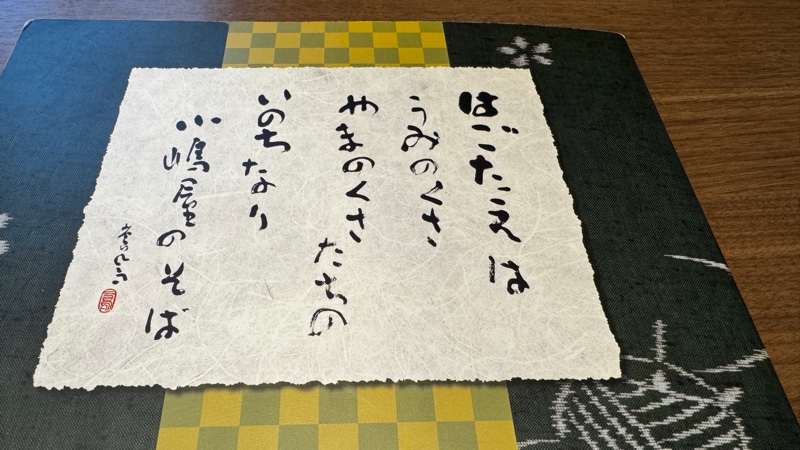 はごたえは
うみのくさ
やまのくさ
たちの
いのちなり
小嶋屋のそば